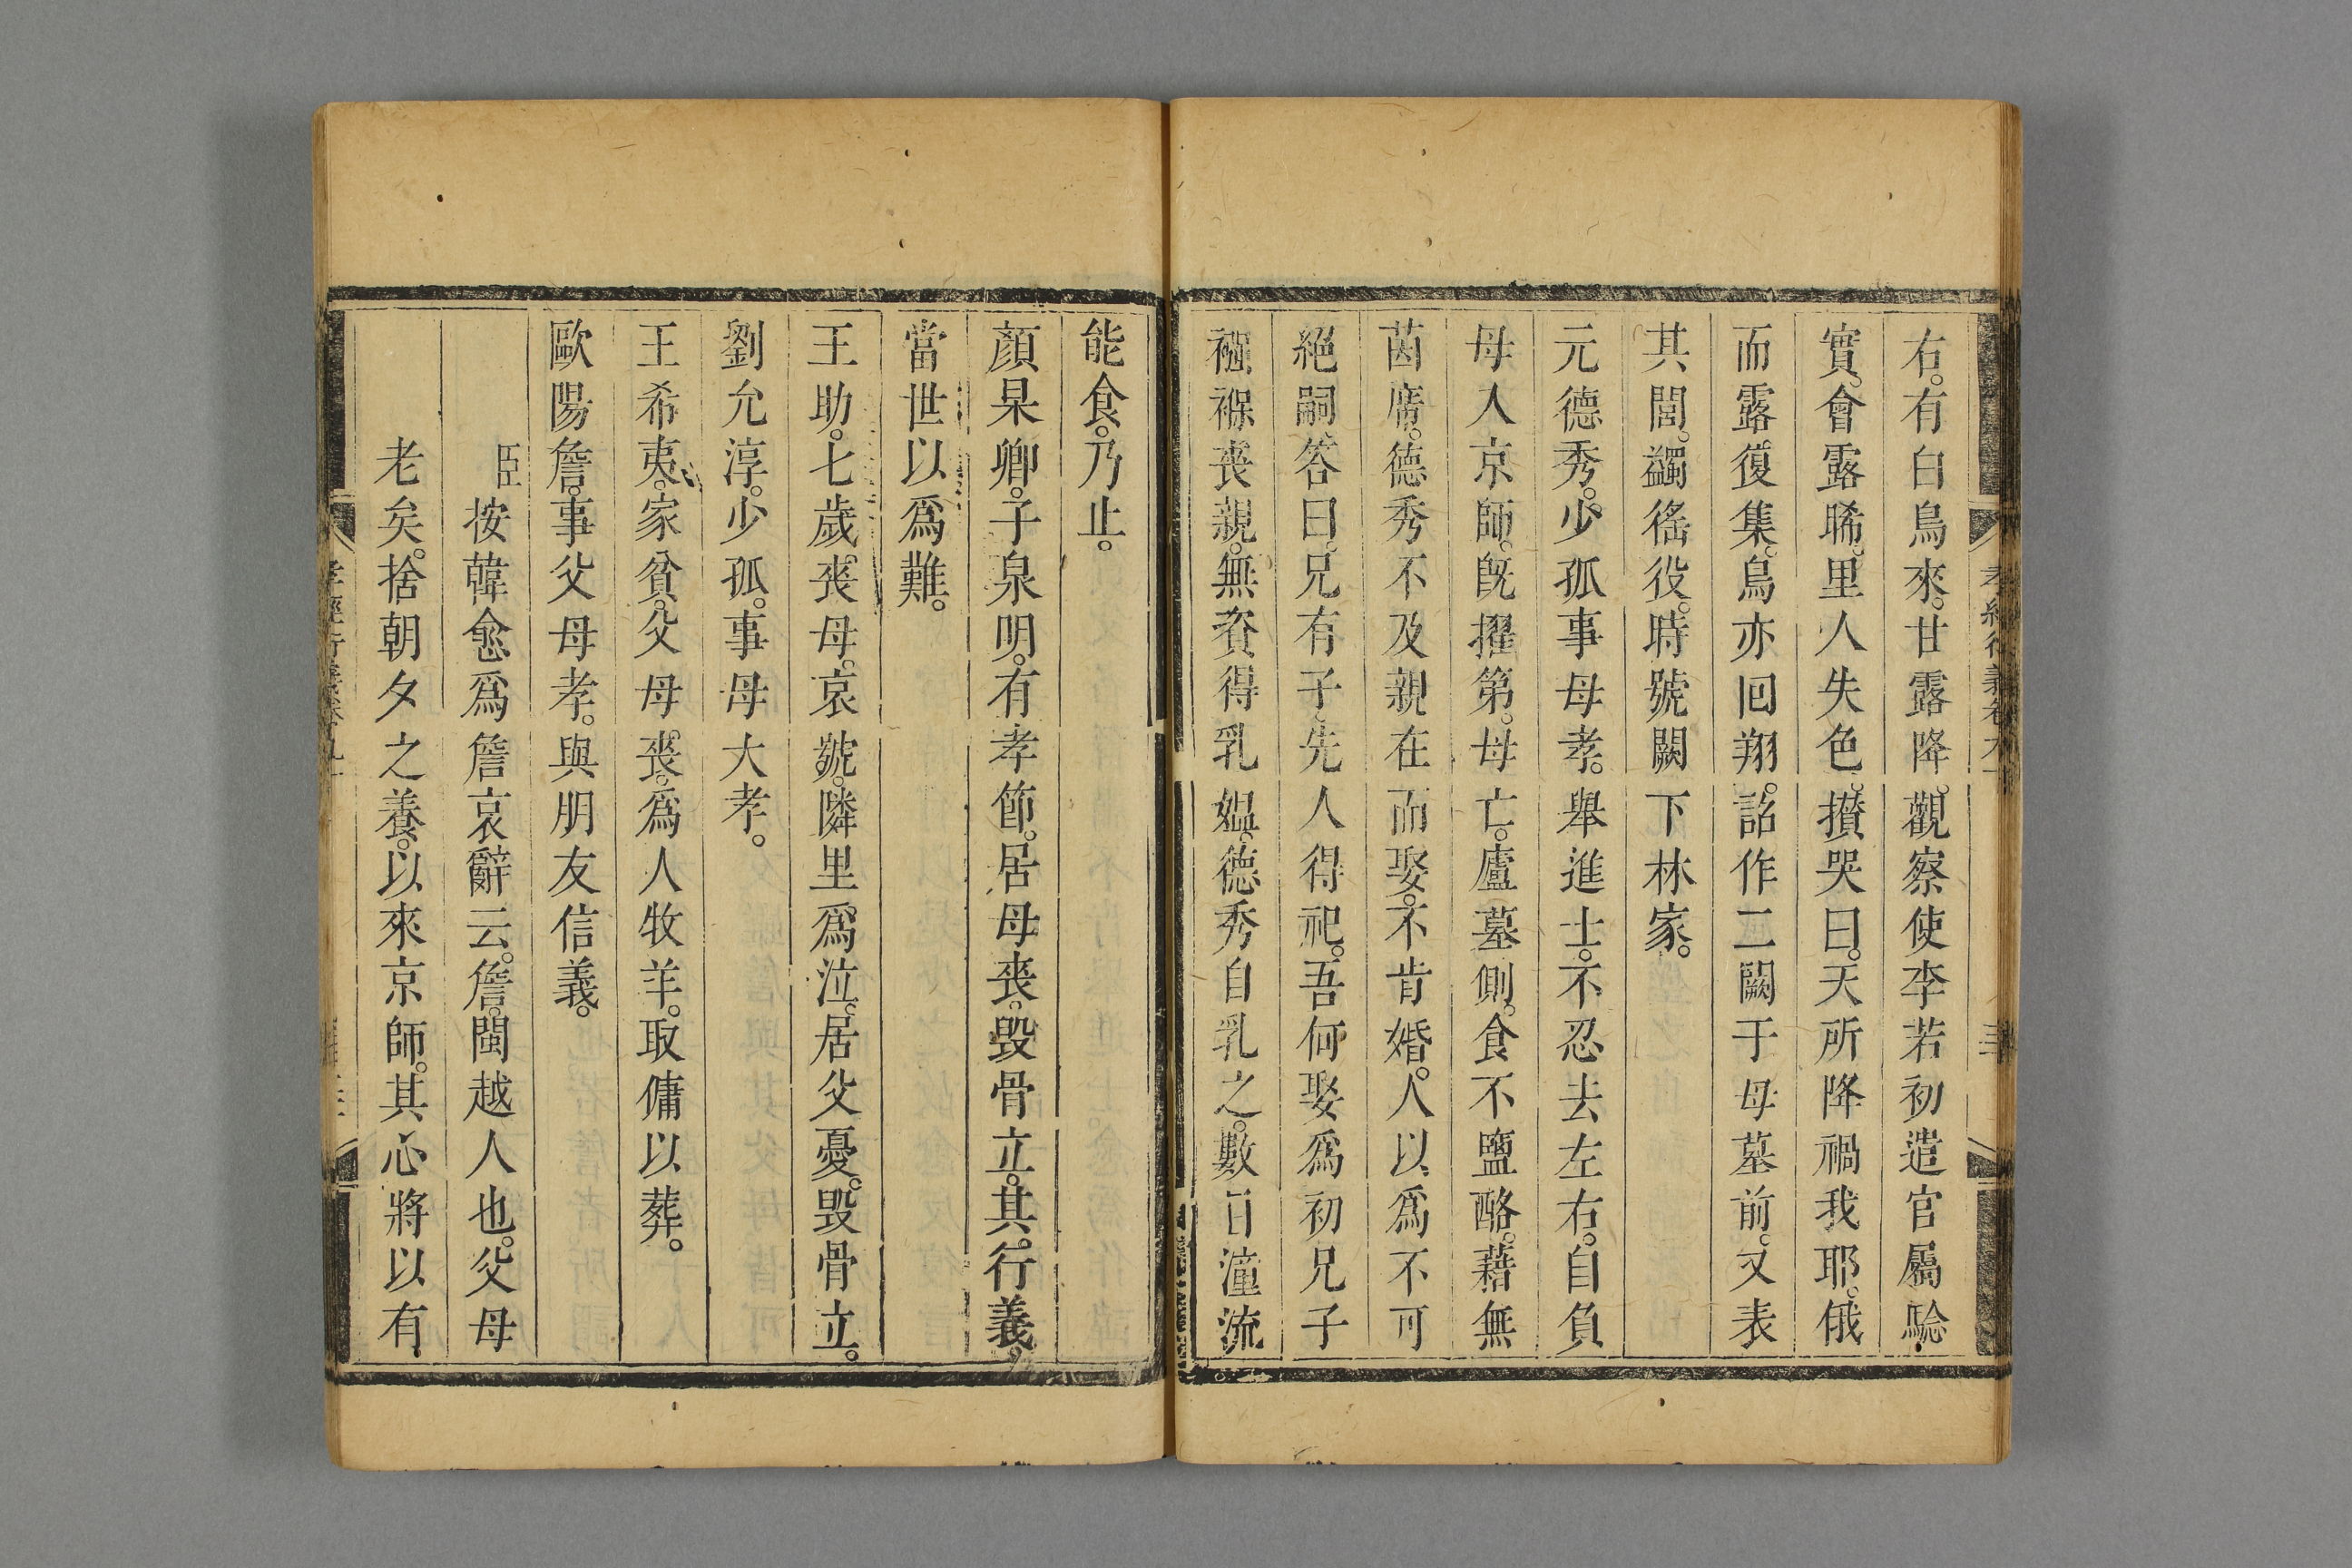 右。有白烏來。甘露降。觀察使李若初遣官屬驗
實。會露晞。里人失色。攅哭曰。天所降禍我耶。俄
而露復集。烏亦回翔。詔作二闕于母墓前。又表
其閭。蠲徭役。時號闕下林家。
元德秀。少孤事母孝。舉進士。不忍去左右。自負
母入京師。既擢第。母亡。廬墓側。食不鹽酪。藉無
茵席。德秀不及親在而娶。不肯婚。人以爲不可
絕嗣。答曰。兄有子。先人得祀。吾何娶爲初兄子
襁褓喪親。無資得乳媼。德秀自乳之。數百湩流
能食。乃止。
顏杲卿。子泉明。有孝節。居母喪。毀骨立。其行義。
當世以爲難。
王助。七歲。喪母。哀號。隣里爲泣。居父憂。毀骨立。
劉允淳。少孤。事母大孝。
王希夷。家貧。父母喪。爲人牧羊。取傭以葬。
歐陽詹。事父母孝。與朋友信義。
臣按韓愈爲詹哀辭云。詹。閩越人也。父母
老矣。捨朝夕之養。以來京師。其心將以有